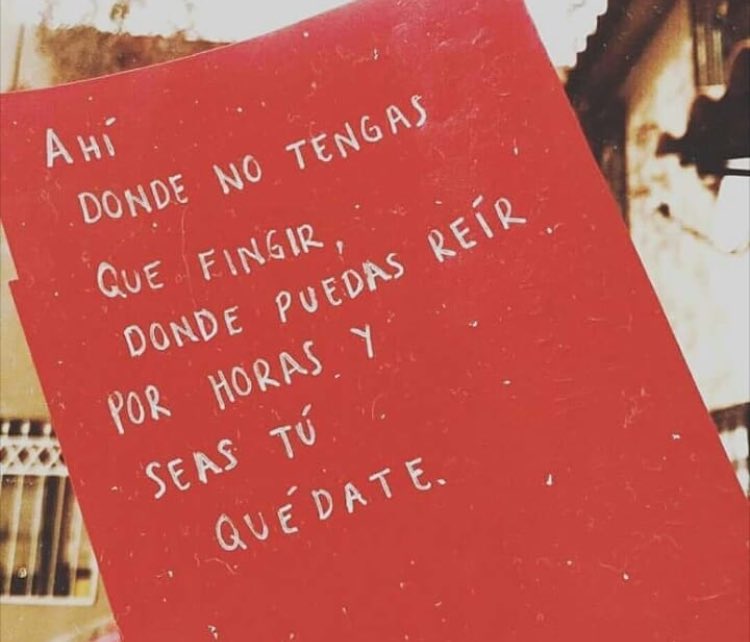 AHÍ
DONDE NO TENGAS
QUE FINGIR,
DONDE PUEDAS REÍR
POR HORAS Y
SEAS TÚ
QUÉDATE.